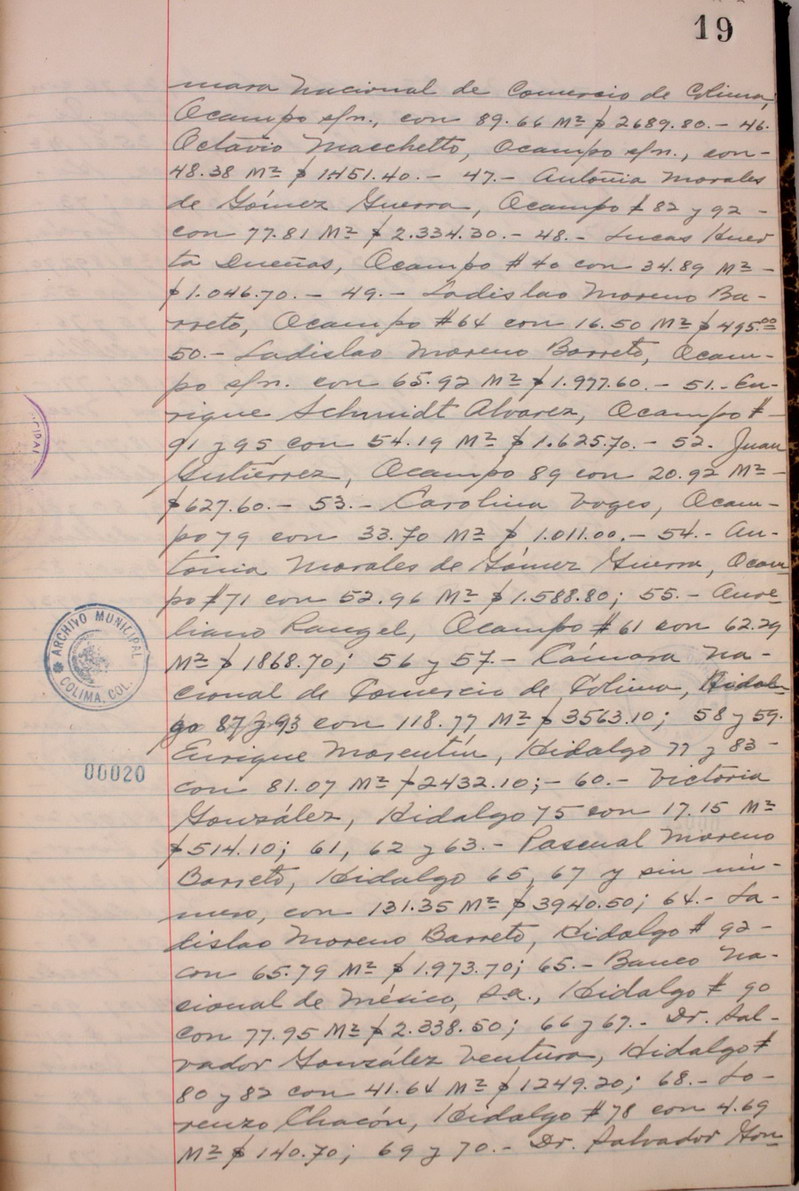 19
mara Nacional de Comercio de Colima,
Ocampo s/n., con 89.66 M² $2689.80.- 46.
Octavio Maschetto, Ocampo s/n., con-
48.38 M² $1451.40.- 47.- Antonia Morales
de Gómez Guerra, Ocampo # 82 y 92-
con 77.81 M² $2.334.30.- 48.- Lucas Huer
ta Dueñas, Ocampo # 40 con 34.89 M²-
$1.046.70.- 49.- Ladislao Moreno Ba-
rreto, Ocampo #64 con 16.50 M² $495.00
50.- Ladislao Moreno Barreto, Ocam-
po s/n. con 65.92 M² $1.977.60.- 51.- En-
rique Schmidt Alvarez, Ocampo #-
91 y 95 con 54.19 M² $1.625.70.- 52. Juan
Gutiérrez, Ocampo 89 con 20.92 M²-
$627.60.- 53.- Carolina Voges, Ocam-
po 79 con 33.70 M² $1.011.00.- 54.- An-
tonia Morales de Gómez Guerra, Ocam
po #71 con 52.96 M² $1.588.80; 55.- Aure-
liano Rangel, Ocampo # 61 con 62.29
M² $1868.70; 56 y 57.- Cámara Na-
cional de Comercio de Colima, Hidal-
go 87 y 93 con 118.77 M² $3563.10; 58 y 59.
Enrique Mosentín, Hidalgo 77 y 83-
con 81.07 M² $2432.10;- 60.- Victoria
González, Hidalgo 75 con 17.15 M²
$514.10; 61, 62 y 63.- Pascual Moreno
Barreto, Hidalgo 65, 67 y sin nú-
mero, con 131.35 M² $3940.50; 64.- La-
dislao Moreno Barreto, Hidalgo # 92-
con 65.79 M² $1.973.70; 65.- Banco Na-
cional de México, S.A., Hidalgo # 90
con 77.95 M² $2.338.50; 66 y 67.- Dr. Sal-
vador González Ventura, Hidalgo #
80 y 82 con 41.64 M² $1249.20; 68.- Lo-
renzo Chacón, Hidalgo #78 con 4.69
M² $140.70; 69 y 70.- Dr. Salvador Gon
ARCHIVO MUNICIPAL
COLIMA, COL.
00020